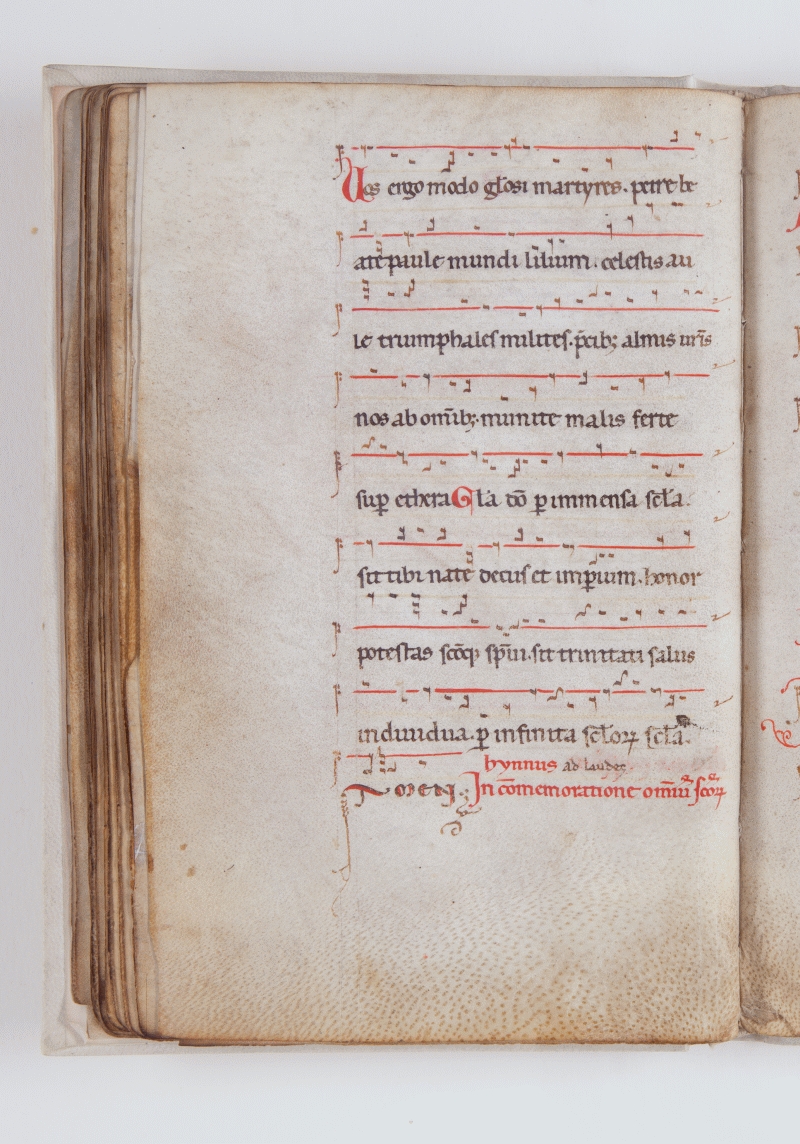 Uos ergo modo gl̄osi martyres. petre be
ate paule mundi lilium. celestis au
le triumphales milites. p̄cib; almis ur̄is
nos ab om̄ib; munite malis ferte
sup̲ ethera Gl̄a d̄o p̲ immensa sc̄l̄a.
sit tibi nate decus et imp̲ium. honor
potestas sc̄oq; sp̄ui. sit trinitati salus
indiuidua. p̲ infinita sc̄loꝝ sc̄l̄a.
hynnus ad laudes.
In c̄omemoratione om̄iū sc̄oꝝ